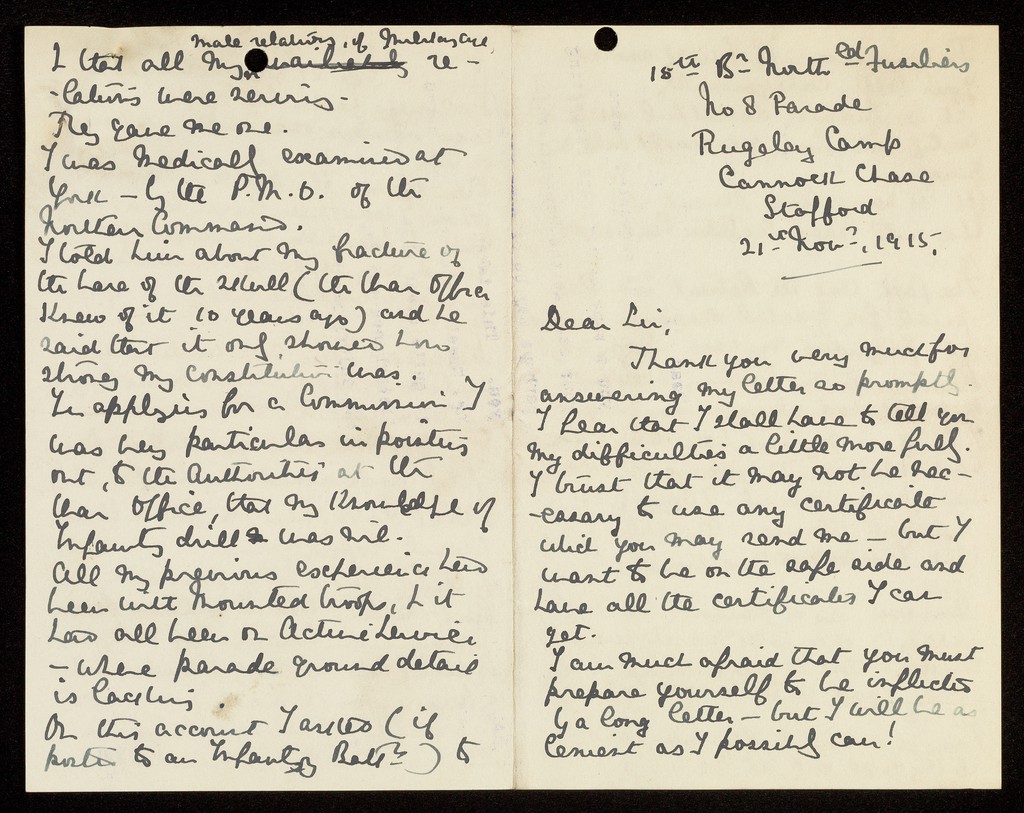 15th Bn North'ld Fusiliers
No 8 Parade
Rugeley Camp
Cannock Chase
Stafford
21st Novr, 1915.
Dear Sir,
Thank you very much for
answering my letter so promptly.
I fear that I shall have to tell you
my difficulties a little more fully.
I trust that it may not be nec-
-essary to use any certificate
which you may send me – but I
want to be on the safe side and
have all the certificates I can
get.
I am much afraid that you must
prepare yourself to be inflicted
by a long letter – but I will be as
lenient as I possibly can!
male relations, of Military age,
& that all my re-
-lations were serving –
They gave me one.
I was medically examined at
York – by the P.M.O. of the
Northern Command.
I told him about my fracture of
the base of the skull (the War Office
knew of it 10 years ago) and he
said that it only showed how
strong my constitution was.
In applying for a Commission I
was very particular in pointing
out, to the Authorities at the
War Office, that my knowledge of
Infantry drill was nil.
All my previous experience has
been with Mounted troops, & it
has all been on Active Service
– where parade ground detail
is lacking.
On this account I asked (if
posted to an Infantry Battn) to